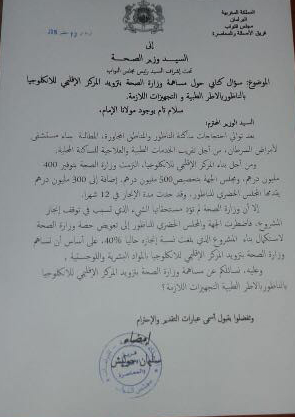 المملكة المغربية
البرلمان
مجلس النواب
فريق الأصالة والمعاصرة
إلى
السيد وزير الصحة
تحت إشراف السيد رئيس مجلس النواب
الموضوع: سؤال كتابي حول مساهمة وزارة الصحة بتزويد المركز الإقليمي للانكلوجيا
بالناظور بالأطر الطبية و التجهيزات اللازمة.
سلام تام بوجود مولانا الإمام.
السيد الوزير المحترم:
بعد توالي احتجاجات ساكنة الناظور والمناطق المجاورة، المطالبة ببناء مستشفى
لأمراض السرطان، من أجل تقريب الخدمات الطبية والعلاجية للساكنة المحلية.
ومن أجل بناء المركز الإقليمي للانكلوجيا، التزمت وزارة الصحة بتوفير 400
مليون درهم، ومجلس الجهة بتخصيص 500 مليون درهم، إضافة إلى 300 مليون درهم
يقدمها المجلس الحضري للناظور. وقد حددت مدة الإنجاز في 12 شهرا.
إلا أن وزارة الصحة لم تؤد مستحقاتها الشيء الذي تسبب في توقف إنجاز
المشروع، فاضطرت الجهة والمجلس الحضري للناظور إلى تعويض حصة وزارة الصحة
لاستكمال بناء المشروع الذي بلغت نسبة إنجازه حاليا 40%، على أساس أن تساهم
وزارة الصحة بتزويد المركز الإقليمي للانكلوجيا بالمواد البشرية واللوجستية.
وعليه، نسائلكم عن مساهمة وزارة الصحة بتزويد المركز الإقليمي للانكلوجيا
بالناظور بالأطر الطبية التجهيزات اللازمة؟
وتفضلوا بقبول أسمى عبارات التقدير والإحترام
إمضاء:
سليمان حوليش